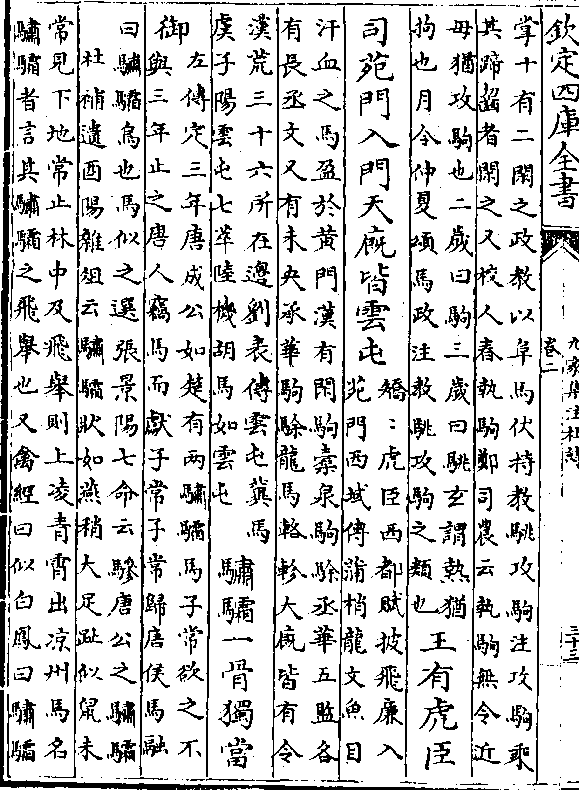 欽定四庫全書
九家集注杜詩
卷二
三十三
掌十有二閑之政教以阜馬伏特教駣攻駒注攻駒乘
其蹄齧者閑之又校人春執駒鄭司農云執駒無令近
母猶攻駒也二歲曰駒三歲曰駣玄謂執猶
拘也月令仲夏頒馬政注教駣攻駒之類也
王有虎臣
司苑門入門天廐皆雲屯
矯:虎臣西都賦披飛廉入
苑門西域傳蒲梢龍文魚目
汗血之馬盈於黄門漢有閑駒橐泉駒駼丞華五監各
有長丞文又有未央承華駒駼龍馬輅軫大廐皆有令
漢荒三十六所在邊劉表傳雲屯冀馬
虞子陽雲屯七萃陸機胡馬如雲屯
驌驦一骨獨當
御
左傳定三年唐成公如楚有两驌驦馬子常欲之不
與三年止之唐人竊馬而獻子常子常歸唐侯馬融
曰驌驦鳥也馬似之選張景陽七命云驂唐公之驌驦
杜補遺酉陽雜俎云驌驦狀如燕稍大足趾似鼠未
常見下地常止林中及飛舉則上凌青霄出凉州馬名
驌驦者言其驌驦之飛舉也又禽經曰似白鳳曰驌驦